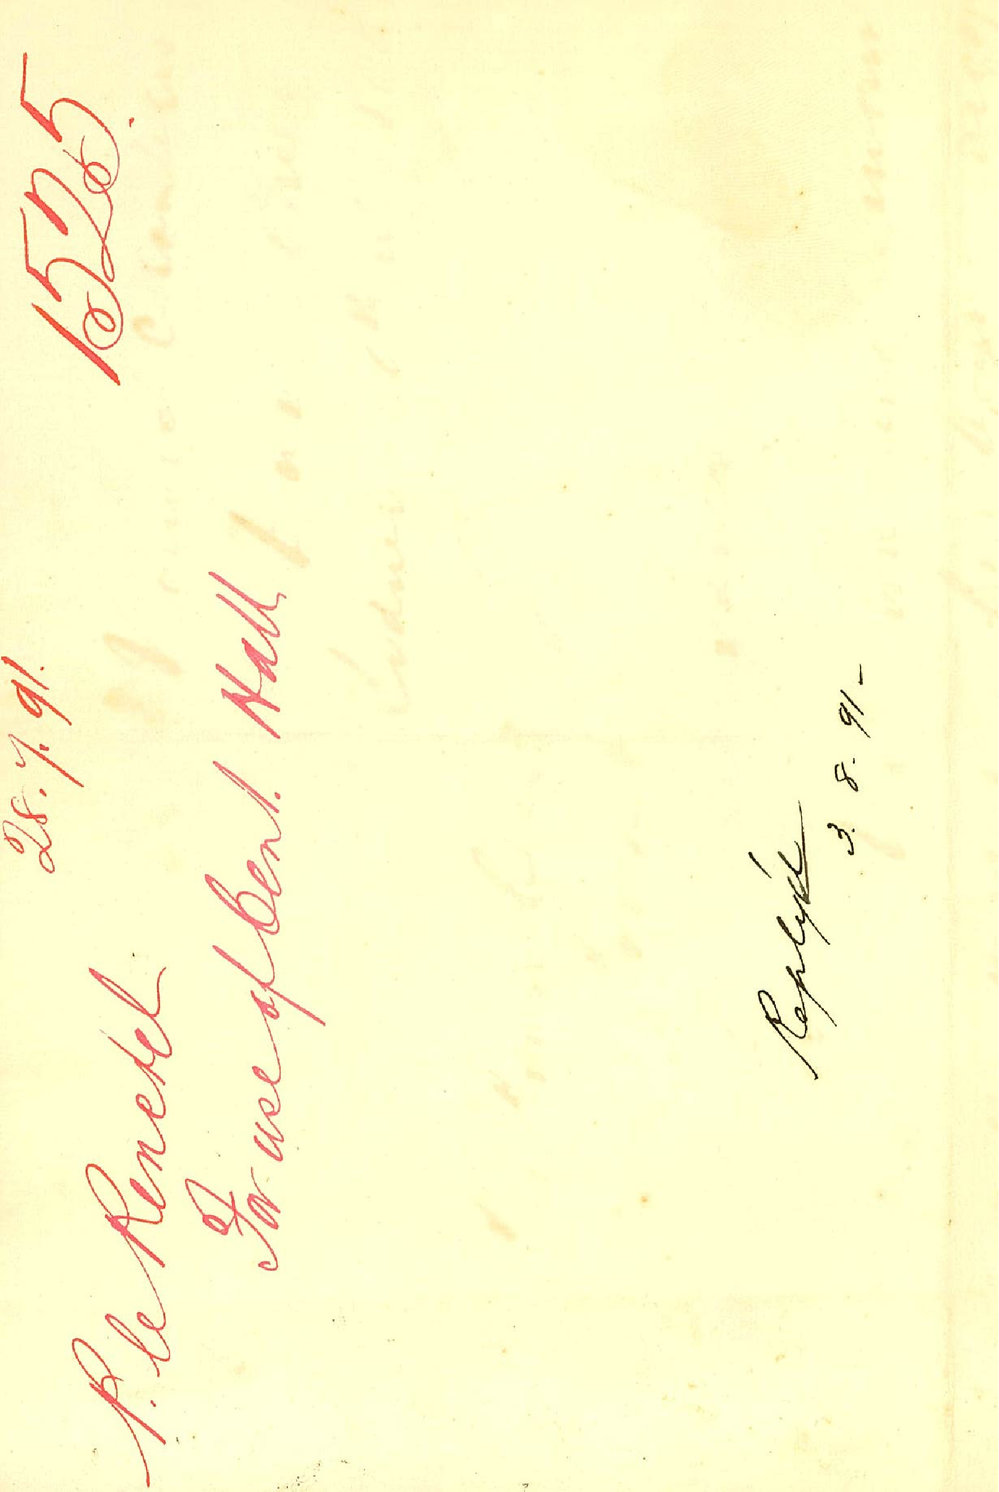 1525.
28.7.91.
P. le Renetel
For use of Cent. Hall
Reply'd
3. 8. 91-